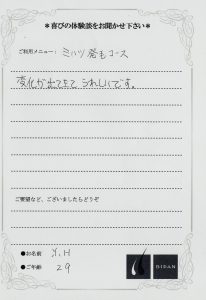 ＊喜びの体験談をお聞かせ下さい＊
ご利用メニュー： ミハツ発毛コース
変化が出てきて うれしいです。
ご要望など、ございましたらどうぞ
●お名前 Y.H
●ご年齢 29
BIDAN